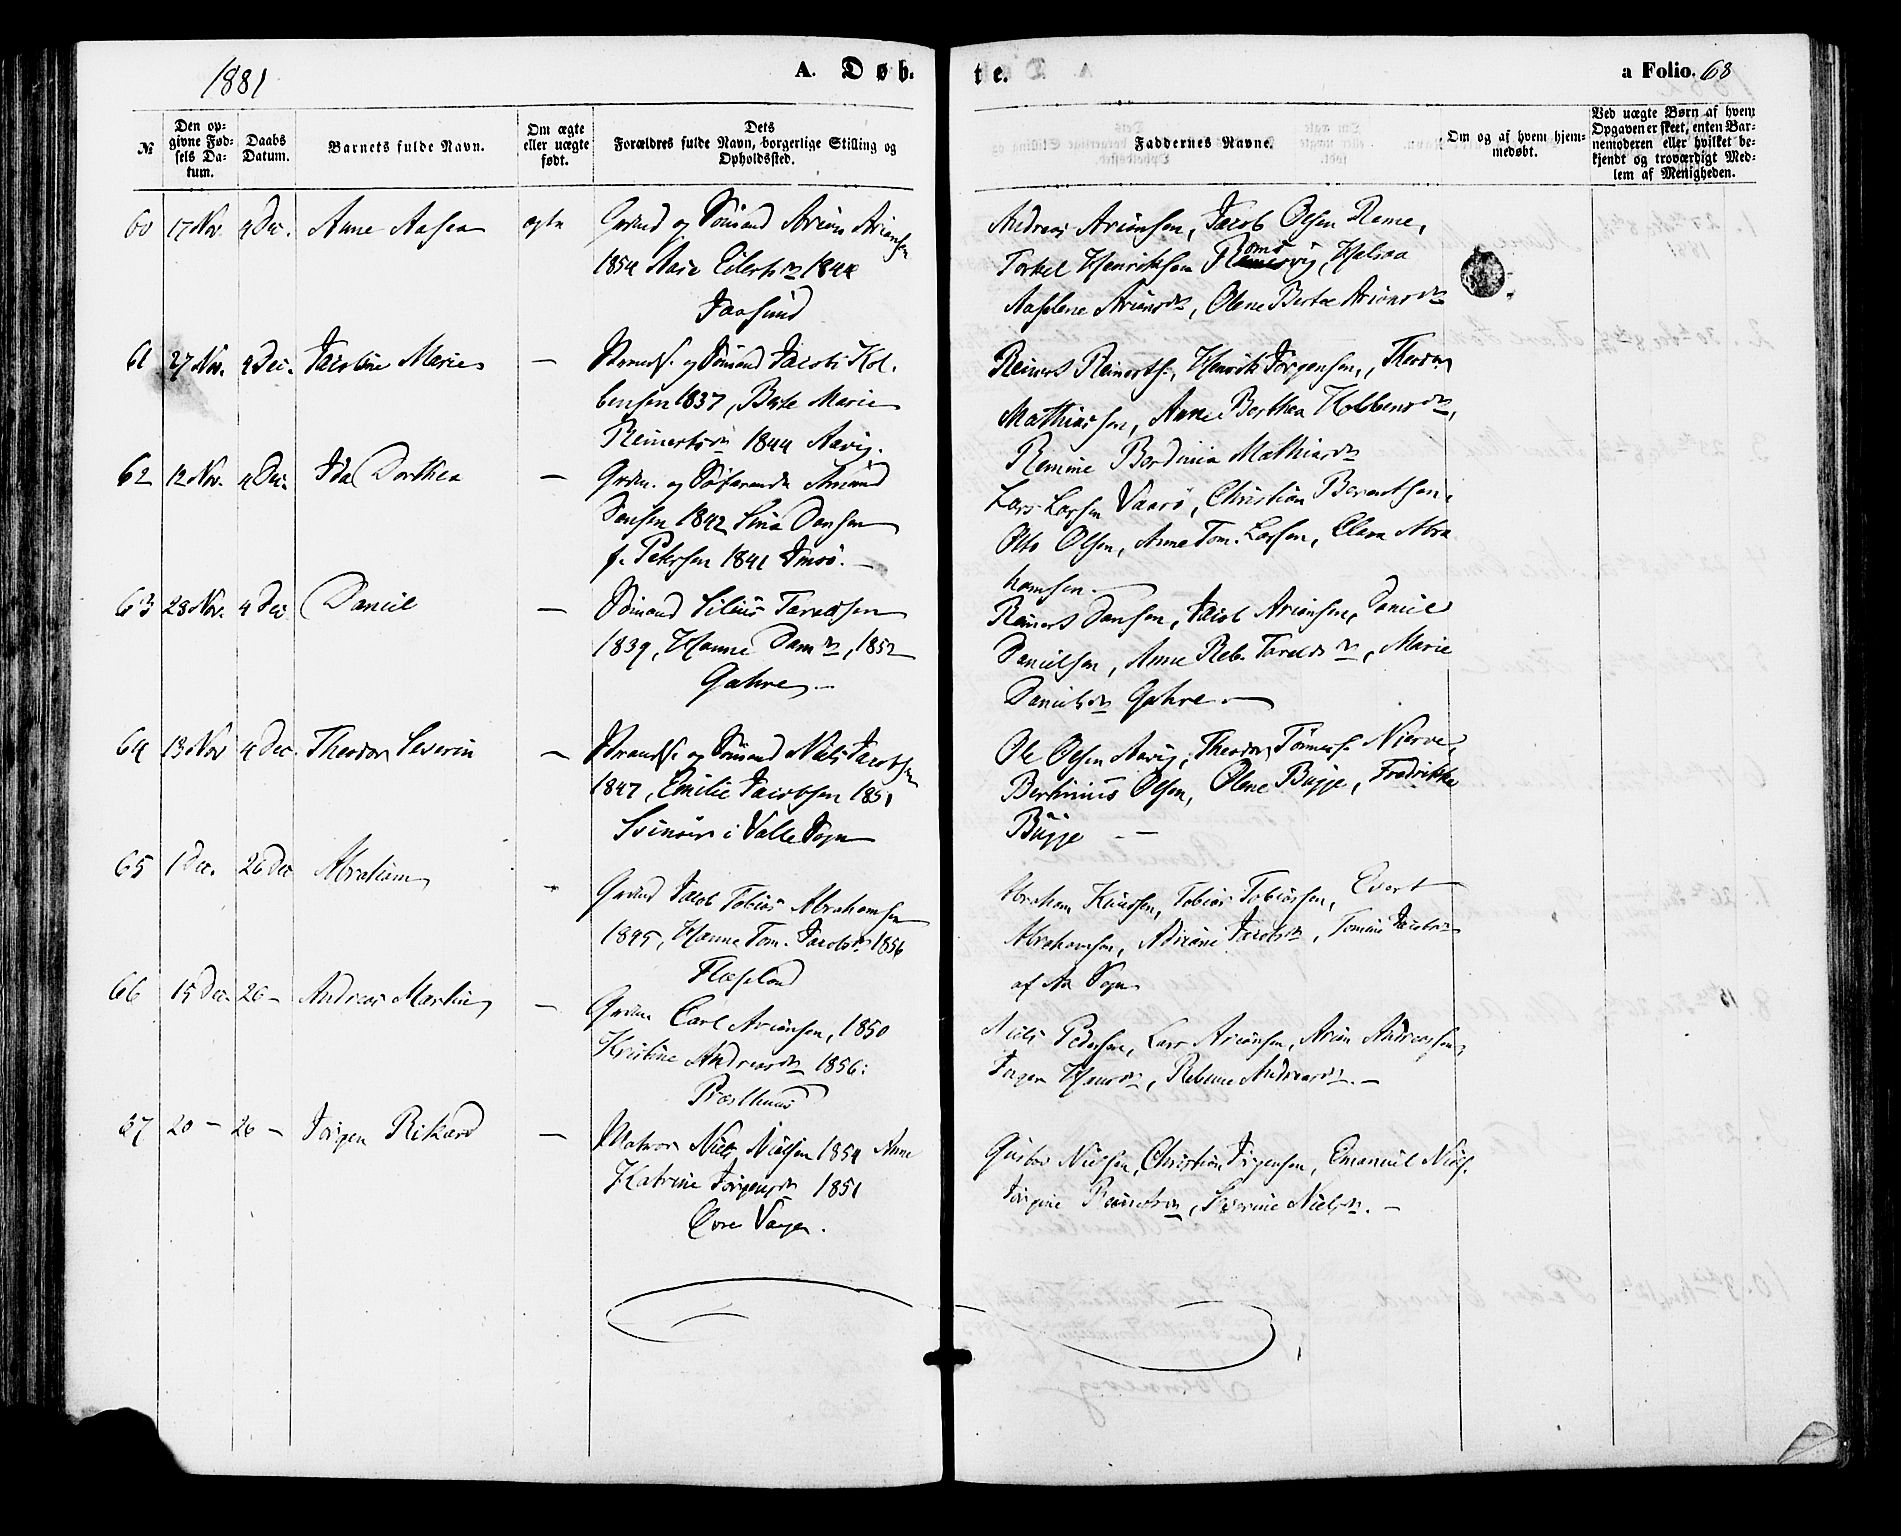 1881
A. Døb- te.
a Folio. 68
№
Den op-
givne Fød-
sels Da-
tum.
Daabs
Datum.
Barnets fulde Navn.
Om ægte
eller uægte
født.
Dets
Forældres fulde Navn, borgerlige Stilling og
Opholdssted.
Faddernes Navne.
Om og af hvem hjem-
medøbt.
Ved uægte Børn af hvem
Opgaven er skeet, enten Bar-
nemoderen eller hvilket be-
kjendt og troværdigt Med-
lem af Menigheden.
60 17 Nov. 4 Dec. Anne Aasea ægte
Gaard og Sømand Arian Ariansen
1854 Marie Eilertsdn 1844
Andreas Ariansen, Jacob Olsen Rame,
Torkel Henriksen
Aaselene Ariansdn, Olene Bertea Ariansdn
61 27 Nov. 4 Dec. Jacobine Marie —
Strands. og Sømand Jacob Kol-
bensen 1837, Berte Marie
Reinertsdn 1844 Aavig.
Reinert Reinerts., Henrik Jørgensen, Theodor
Mathiassen, Anne Berthea Kolbensdn,
Remine Bordinia Mathiasdn
62 12 Nov. 4 Dec. Ida Dorthea —
Gaardm. og Søfarende Amund
Jansen 1842 Sina Jansen
f. Petersen 1841 Imsø. —
Lars Larsen Vaarø, Christian Berentsen,
Otto Olsen, Anne Tom. Larsen, Elena Abra
hamsen. —
63 28 Nov. 4 Dec. Daniel —
Sømand Silius Taraldsen
1839, Hanne Dansdn, 1852
Gahre. —
Reinert Jansen, Jacob Ariansen, Daniel
Danielsen, Anne Reb. Taraldsdn, Marie
Danielsdn Gahre —
64 13 Nov 4 Dec. Theodor Severin —
Strands. og Sømand Niels Jacobsen
1847, Emilie Jacobsen 1851
Svinør i Valle Sogn
Ole Olsen Aavig, Theodor Tønnes. Njerve,
Bertinius Olsen, Olene Bugge, Fredrikke
Bugge — —
65 1 Dec. 26 Dec Abraham —
Gaard Jacob Tobias Abrahamsen
1845, Hanne Tom. Jacobsdn 1856
Flaseland
Abraham Knudsen, Tobias Tobiassen, Evert
Abrahamsen, Adriane Jacobsdn, Tomine Jacobsdn
af Aa Sogn
66 15 Dec. 26 — Andreas Martin —
Gaardm Carl Ariansen, 1850
Kristine Andreasdn 1856:
Præsthuus
Niels Pedersen, Lars Ariansen, Arian Andreassen,
Inger Hansdn, Rebine Andreasdn. —
67 20 — 26 — Jørgen Rikard —
Matros Niels Nielsen 1854 Anne
Katrine Jørgensdn 1851
Øvre Vaagen.
Gustav Nielsen, Christian Jørgensen, Emanuel Niels.
Jørgine Reinertsdn, Severine Nielsdn. —